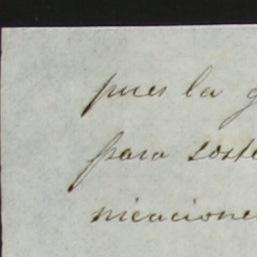 pues la g
para soste
nicacione